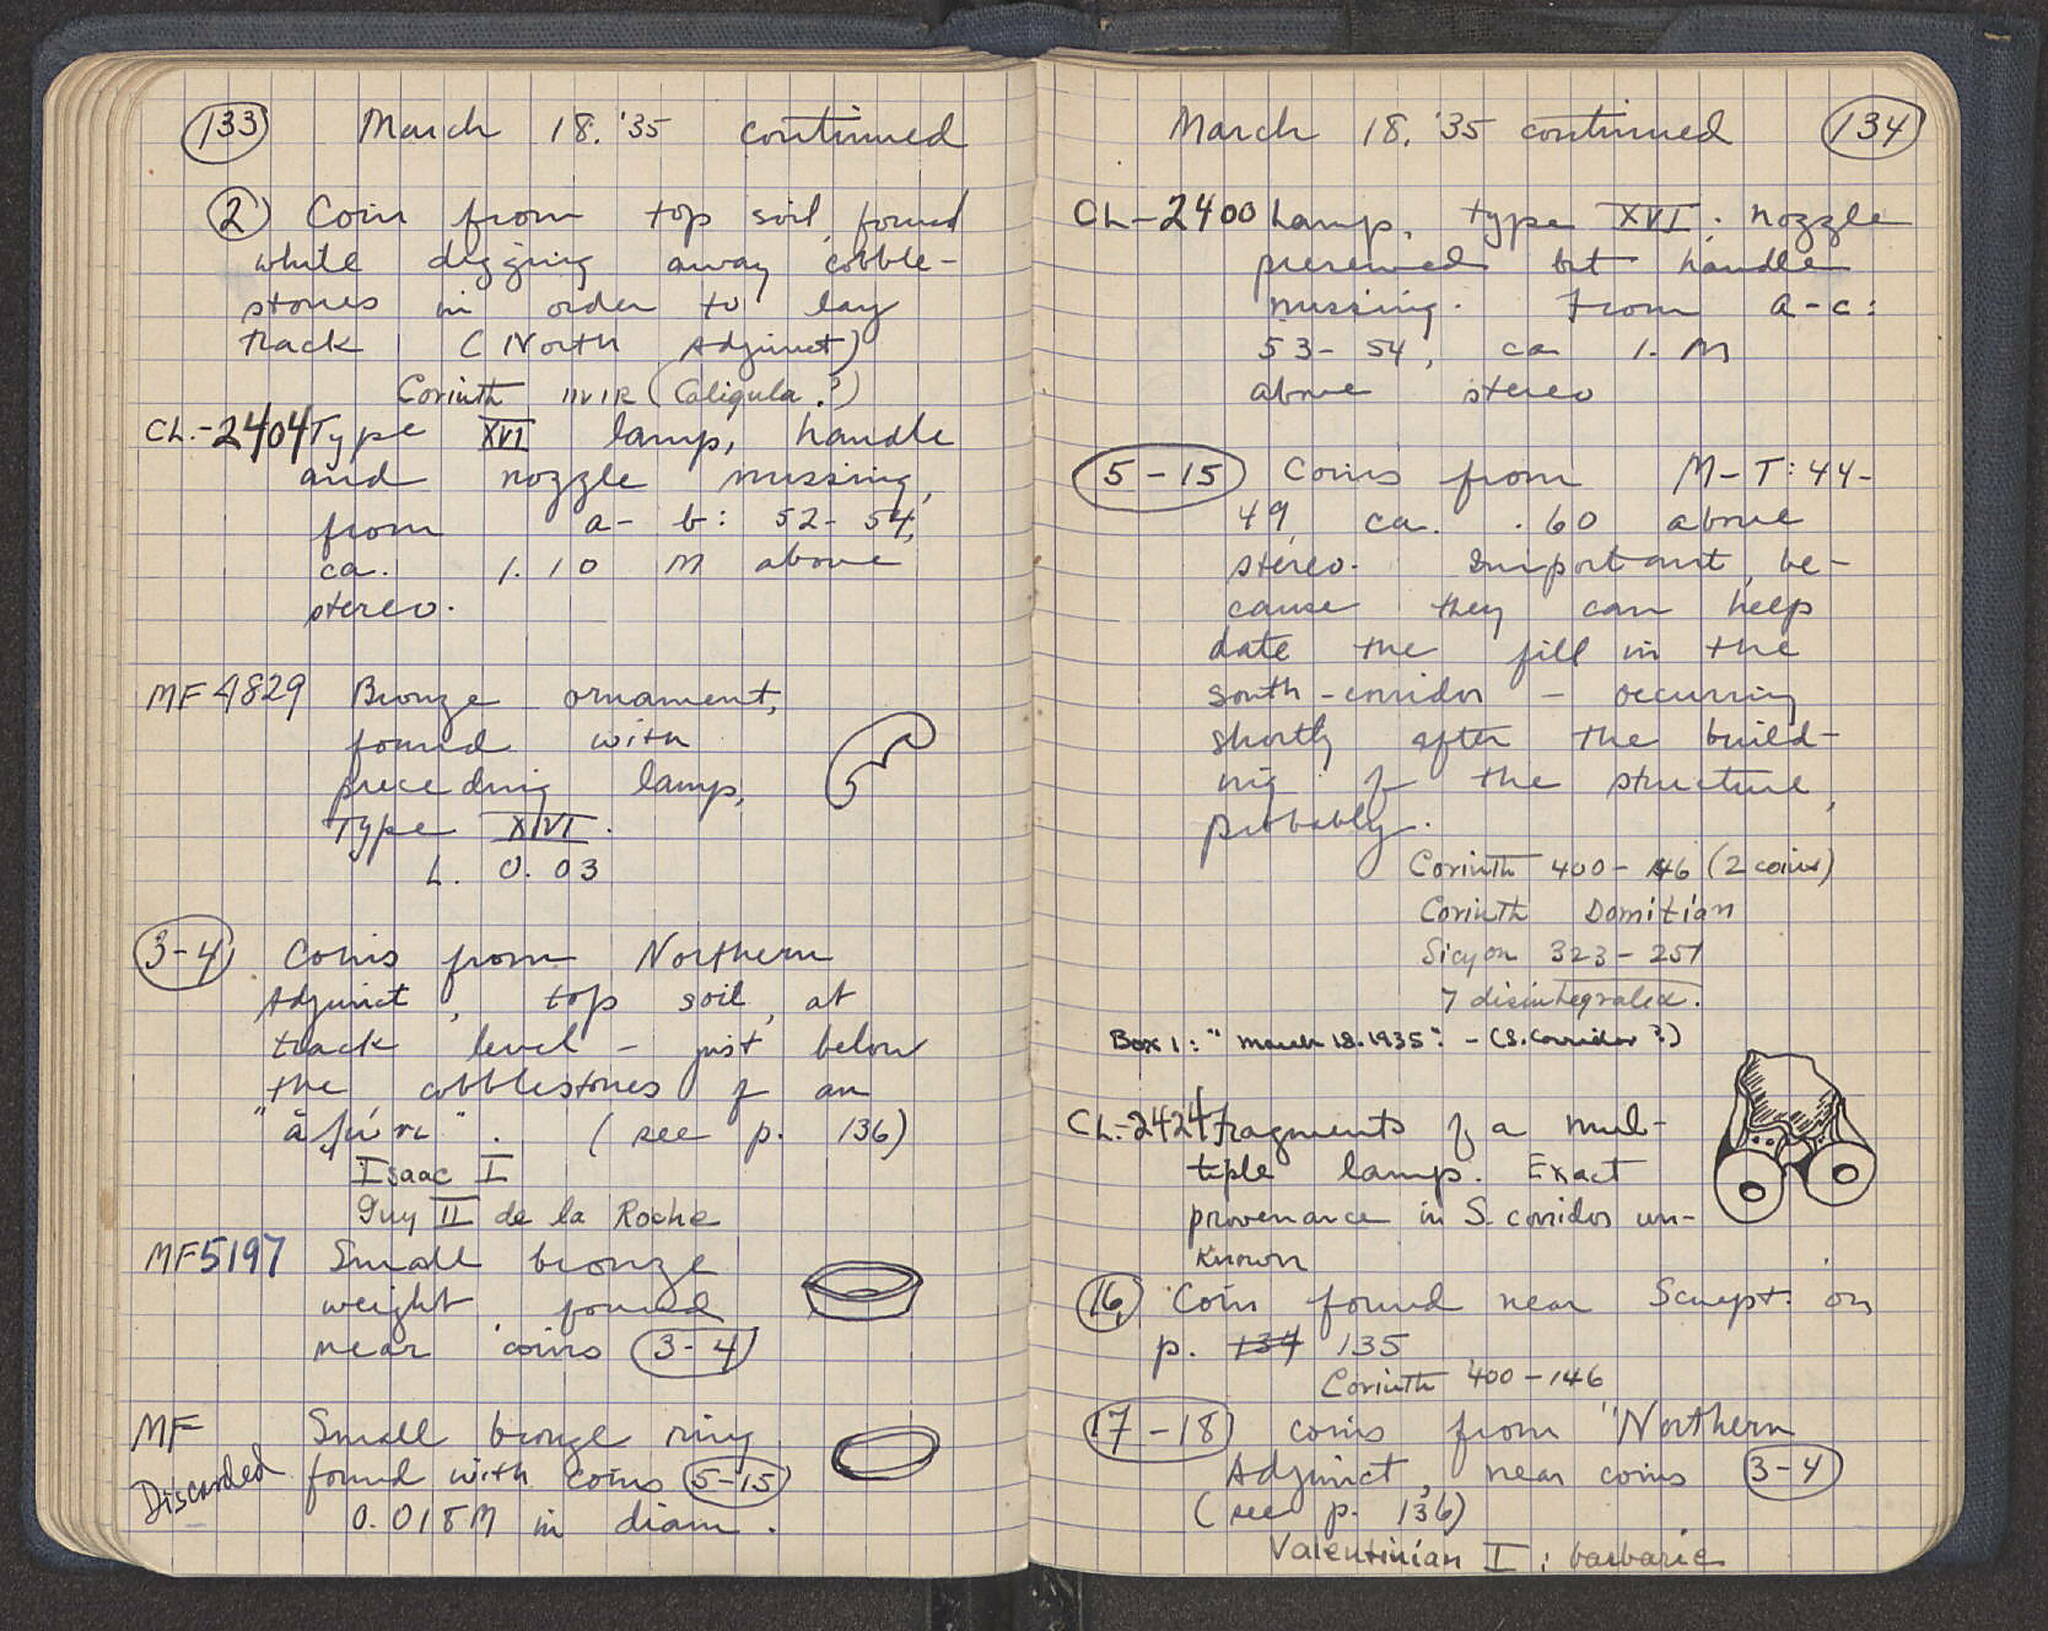 133 March 18. '35 continued
2 Coin from top soil, found
while digging away cobble-
stones in order to lay
track (North Adjunct)
Corinth IIVIR (Caligula ?)
CL.-2404 Type XVI lamp, handle
and nozzle missing,
from a- b: 52- 54,
ca. 1.10 M above
stereo.
MF 4829 Bronze ornament,
found with
preceding lamp,
Type XVI.
L. 0.03
3-4 Coins from Northern
Adjunct, top soil, at
track level - just below
the cobblestones of an
(see p. 136)
Isaac I
Guy II de la Roche
MF5197 Small bronze
weight found
near coins 3-4
MF Small bronze ring
Discarded found with coins 5-15
0.018M in diam.
March 18. '35 continued 134
CL-2400 Lamp, type XVI. Nozzle
preserved but handle
missing. From a-c:
53- 54, ca 1. M
above stereo
5-15 Coins from M-T: 44-
49, ca. .60 above
stereo. Important, be-
cause they can help
date the fill in the
south-corridor - occurring
shortly after the build-
ing of the structure,
probably.
Corinth 400-146 (2 coins)
Corinth Domitian
Sicyon 323-251
7 disintegrated.
Box 1: "March 18.1935". - (S. Corridor ?)
CL.-2424 fragments of a mul-
tiple lamp. Exact
provenance in S. corridor un-
known
16 Coin found near Sculpt. on
p. 134 135
Corinth 400-146
17-18 coins from "Northern
Adjunct, near coins 3-4
(see p. 136)
Valentinian I; barbaric